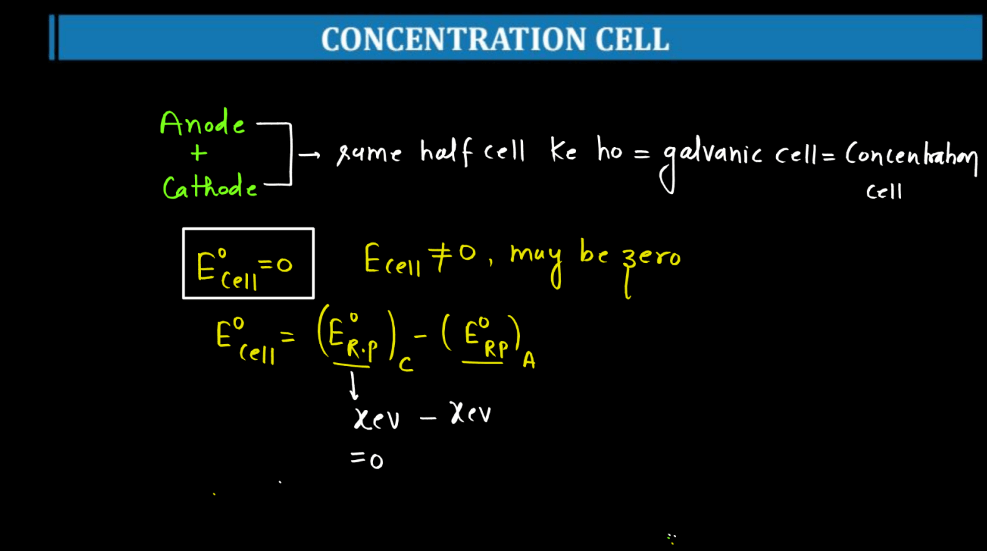 CONCENTRATION CELL
Anode
+
Cathode
→ same half cell ke ho = galvanic cell = Concentration
cell
E°cell = 0
Ecell ≠ 0, may be zero
E°cell = (E°R.P)C - (E°RP)A
↓
xev - xev
= 0